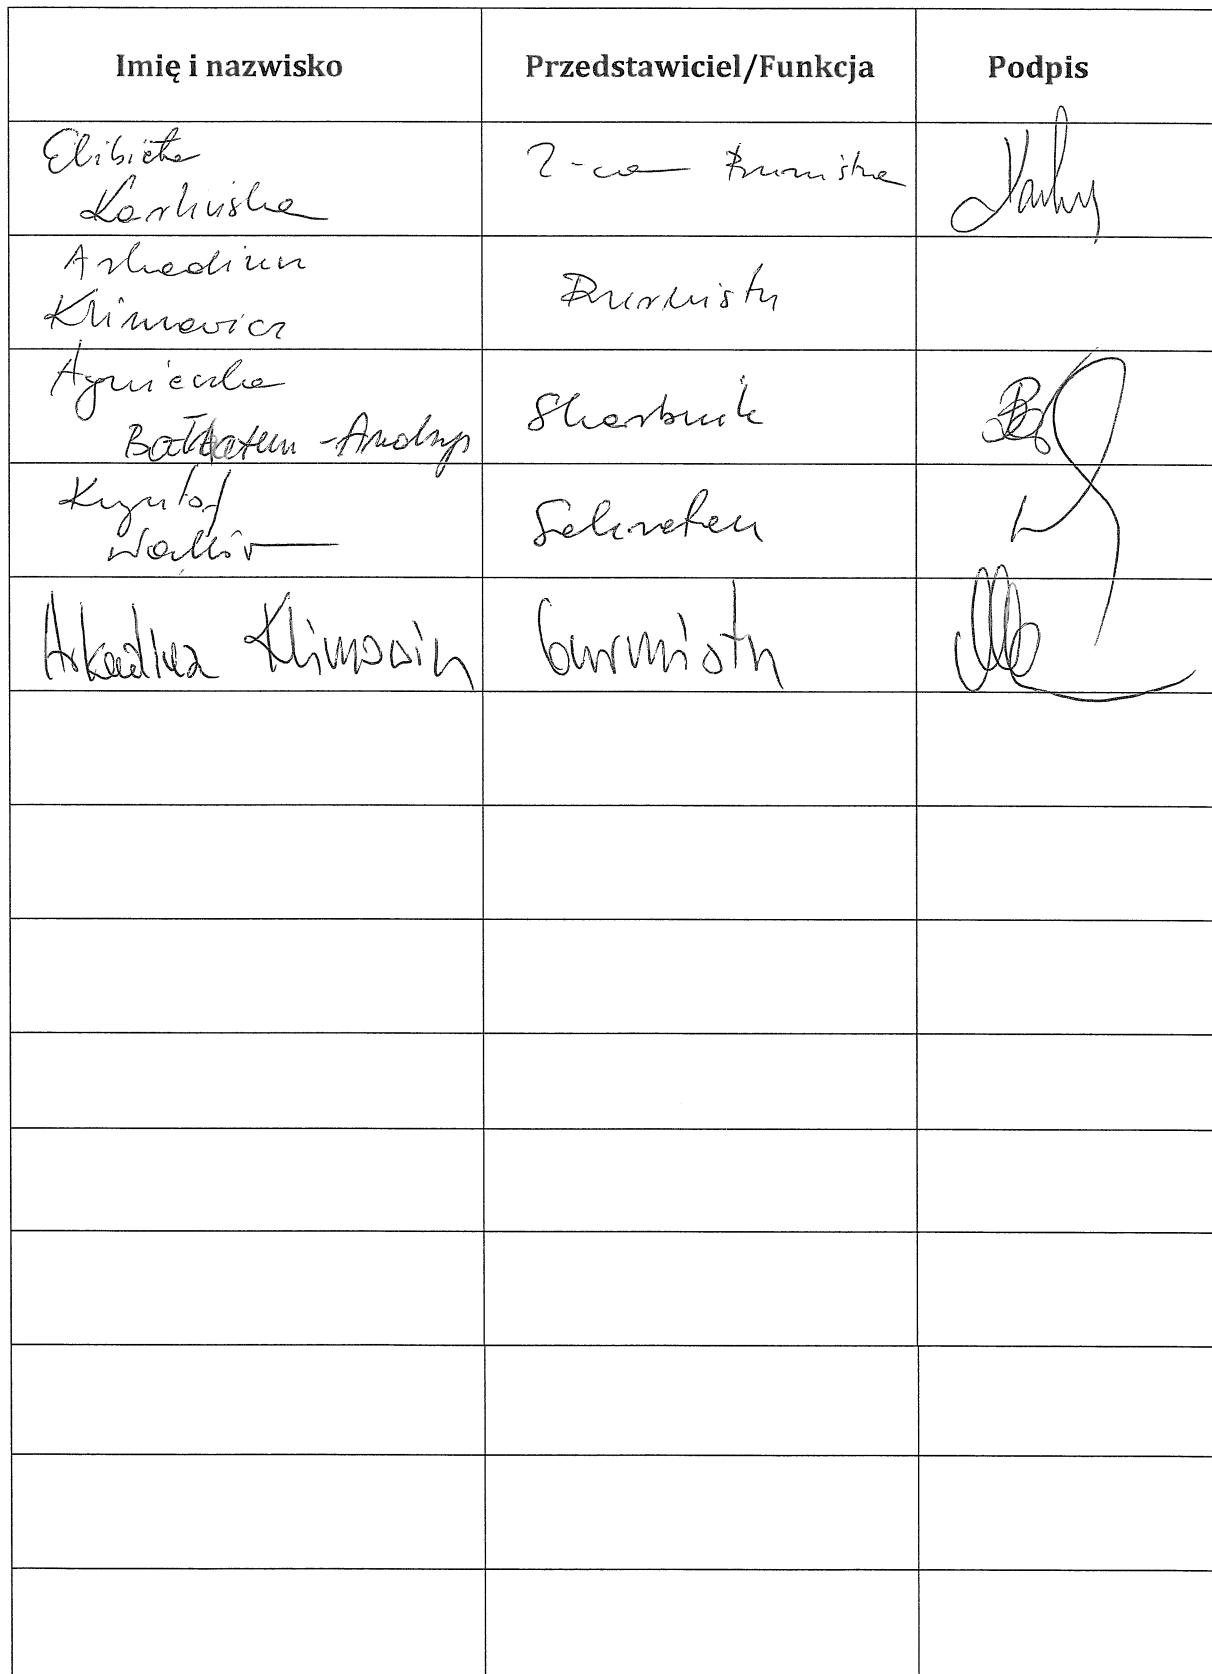 Imię i nazwisko Przedstawiciel/Funkcja Podpis
Elżbieta
Karlińska
Z-ca Burmistrza
Arkadiusz
Klimowicz
Burmistrz
Agnieszka
-Andrys
Skarbnik
Krzysztof
Sekretarz
Arkadiusz Klimowicz burmistrz